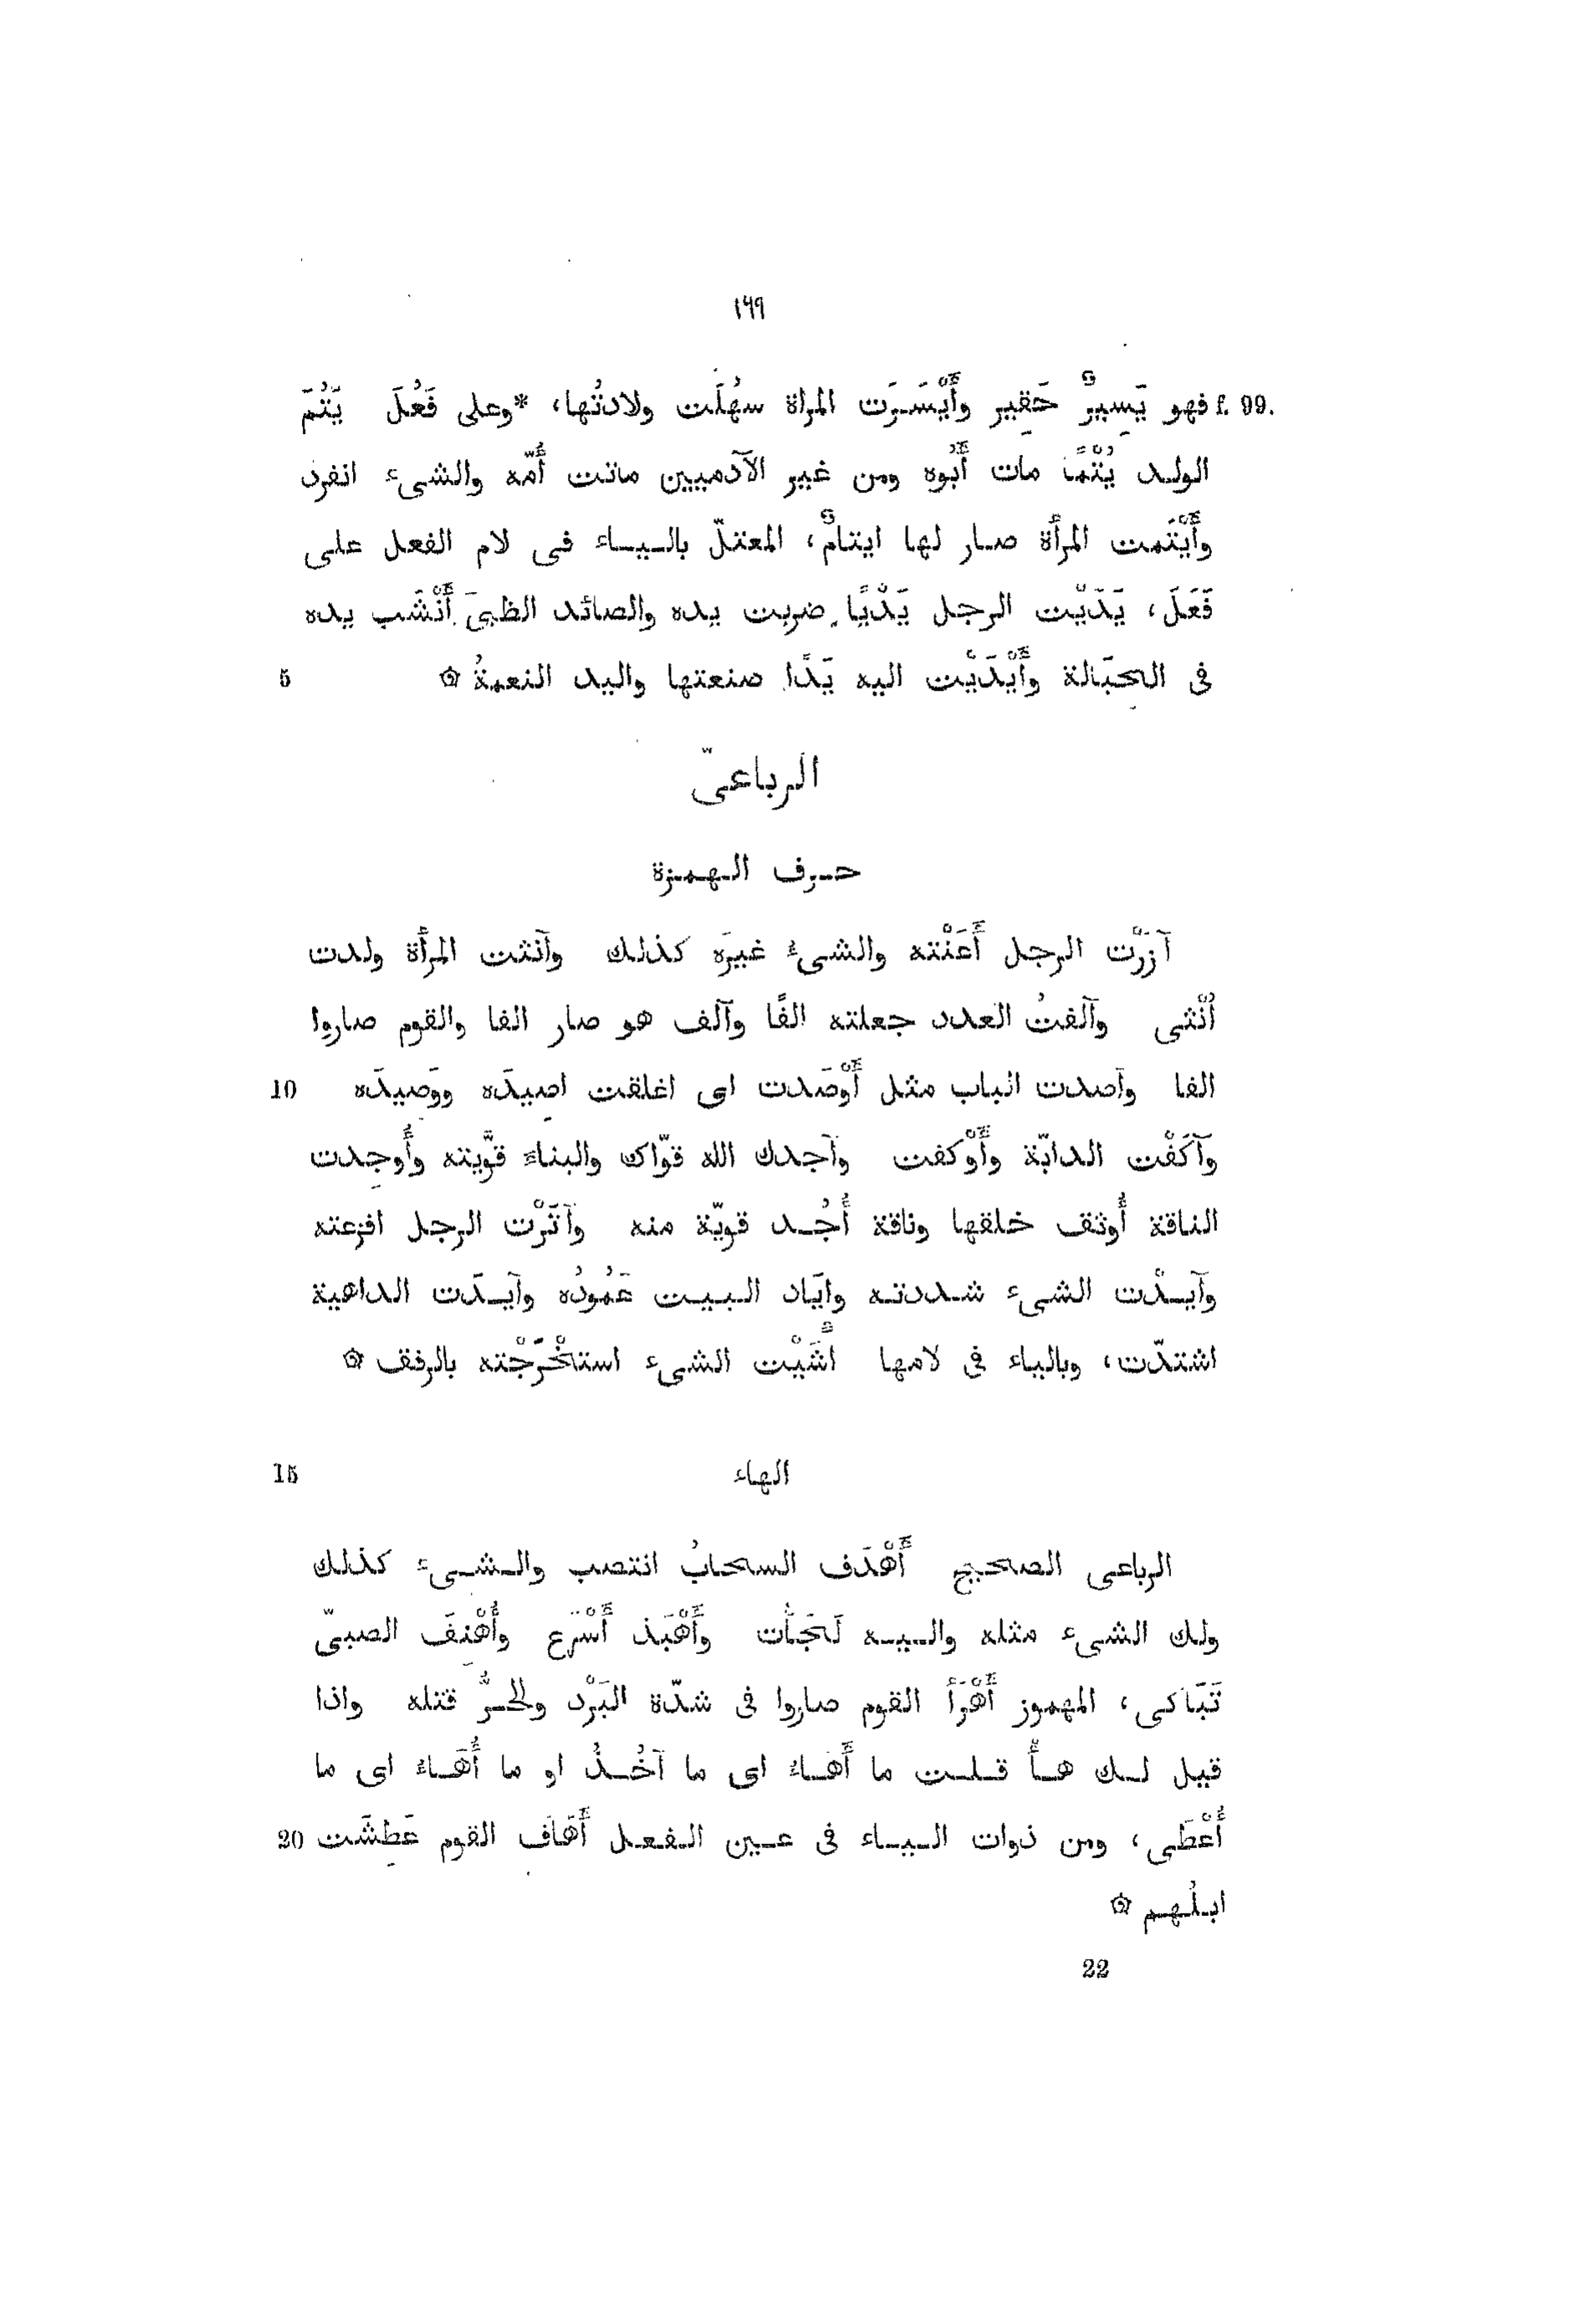 ١٦٩
f. 99. فهو يَسِيرٌ حَقِير وأَيْسَرَت المراة سهُلَت ولادتُها، *وعلى فَعُلَ يَتُمَ
الولد يُتْمًا مات أَبُوه ومن غير الآدميين ماتت أُمّه والشىء انفرد
وأَيْتَمت المرأة صار لها ايتامٌ، المعتلّ بالياء فى لام الفعل على
فَعَلَ، يَدَيْت الرجل يَدْيًا ضربت يده والصائد الظبىَ أَنْشَب يده
فى الحِبَالة وأَيْدَيْت اليه يَدًا صنعتها واليد النعمةُ ۞ 5
الرباعىّ
حرف الهمزة
آزَرْت الرجل أَعَنْته والشىءُ غيرَه كذلك وآنثت المرأة ولدت
أُنْثى وآلفتُ العدد جعلته الفًا وآلف هو صار الفا والقوم صاروا
الفا وآصدت الباب مثل أَوْصَدت اى اغلقت اصِيدَه ووَصيدَه 10
وآكَفْت الدابّة وأَوْكفت وآجدك الله قوّاك والبناءَ قوَّيته وأُوجِدت
الناقة أُوثق خلقها وناقة أُجُد قويّة منه وآتَرْت الرجل افزعته
وآيدْت الشىء شددته وايَاد البيت عَمُودُه وآيدَت الداهية
اشتدّت، وبالياء فى لامها أَشَّيْت الشىء استخْرَجْته بالرفق ۞
الهاء 15
الرباعى الصحيح أَهْدَف السحابُ انتصب والشىء كذلك
ولك الشىء مثله واليه لَجَأْت وأَهْبَذ أَسْرَع وأَهْنِفَ الصبىّ
تَبَاكى، المهموز أَهْرَأَ القوم صاروا فى شدّة البَرْد والحرُّ قتله واذا
قيل لك هأ قلت ما أَهاءُ اى ما آخُذُ او ما أُهَاءُ اى ما
أُعْطَى، ومن ذوات الياء فى عين الفعل أَهَاف القوم عَطِشَت 20
ابلُهم ۞
22